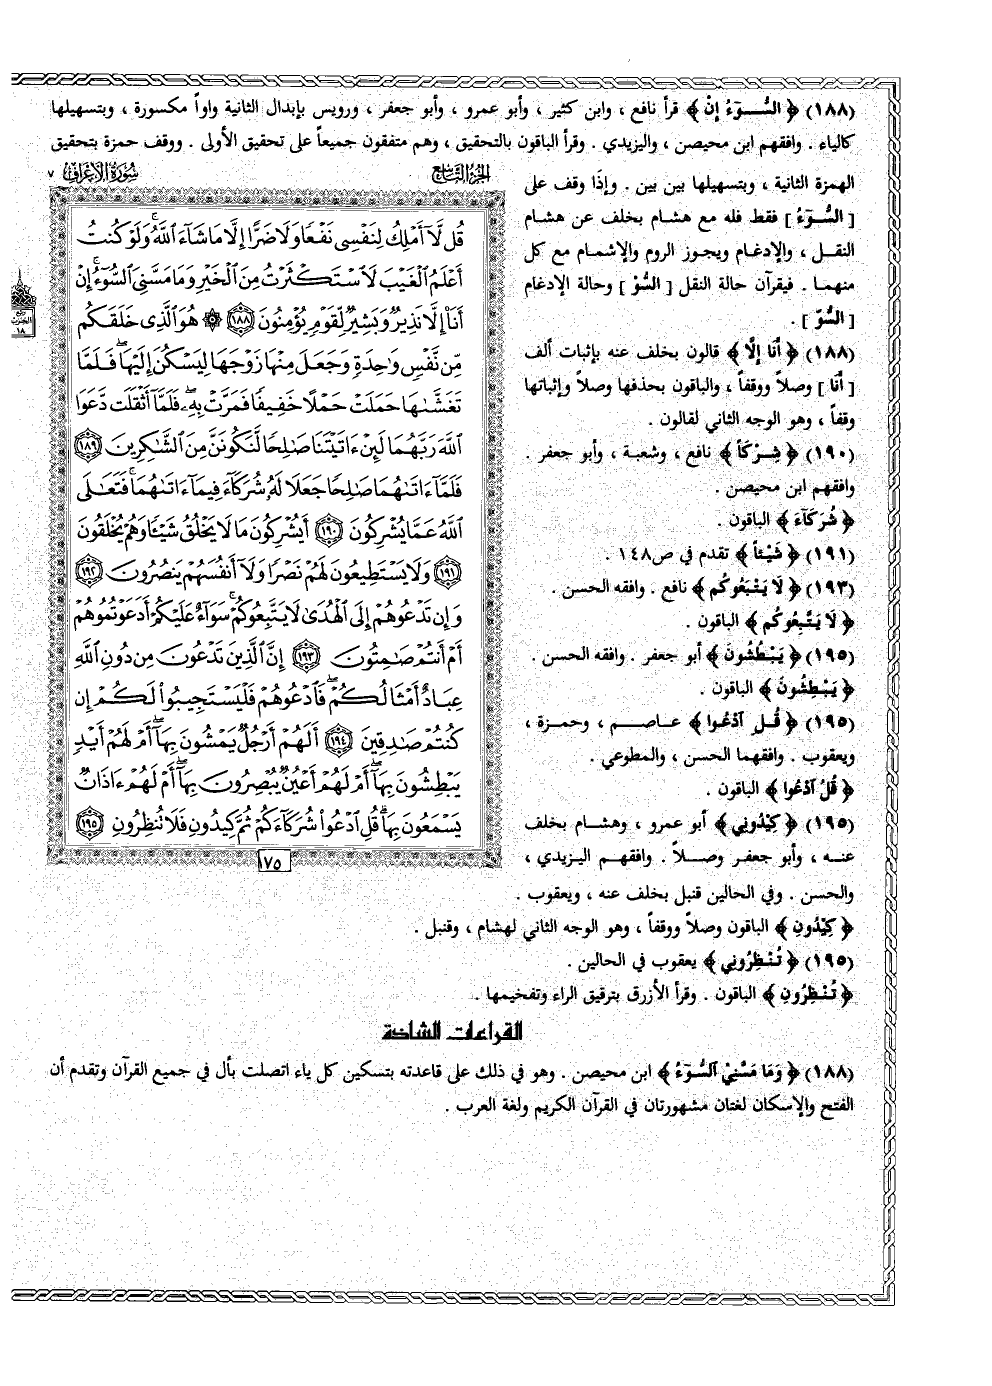 (١٨٨) ﴿ السُّـوٓءُ إِنْ ﴾ قرأ نافع ، وابن كثير ، وأبو عمرو ، وأبو جعفر ، ورويس بإبدال الثانية واواً مكسورة ، وبتسهيلها
كالياء . وافقهم ابن محيصن ، واليزيدي . وقرأ الباقون بالتحقيق ، وهم متفقون جميعاً على تحقيق الأولى . ووقف حمزة بتحقيق
الهمزة الثانية ، وبتسهيلها بين بين . وإذَا وقف على
[ السُّـوٓءُ ] فقط فله مع هشام بخلف عن هشام
النقـل ، والإدغام ويجوز الروم والإشمام مع كل
منهمـا . فيقرآن حالة النقل [ السُّوْ ] وحالة الإدغام
[ السُّوّ ] .
(١٨٨) ﴿ أَنَا إِلَّا ﴾ قالون بخلف عنه بإثبات ألف
[ أَنَا ] وصلاً ووقفاً ، والباقون بحذفها وصلاً وإثباتها
وقفاً ، وهو الوجه الثاني لقالون .
(١٩٠) ﴿ شِـرْكاً ﴾ نافع ، وشعبة ، وأبو جعفر .
وافقهم ابن محيصن .
﴿ شُرَكَآءَ ﴾ الباقون .
(١٩١) ﴿ شَيْئاً ﴾ تقدم في ص١٤٨ .
(١٩٣) ﴿ لَا يَتْبَعُوكُم ﴾ نافع . وافقه الحسن .
﴿ لَا يَتَّبِعُوكُم ﴾ الباقون .
(١٩٥) ﴿ يَبْطُشُونَ ﴾ أبو جعفر . وافقه الحسن .
﴿ يَبْطِشُونَ ﴾ الباقون .
(١٩٥) ﴿ قُـلِ ٱدْعُوا ﴾ عـاصـم ، وحمـزة ،
ويعقوب . وافقهما الحسن ، والمطوعي .
﴿ قُلُ ٱدْعُوا ﴾ الباقون .
(١٩٥) ﴿ كِيدُونِي ﴾ أبو عمرو ، وهشام بخلف
عنـه ، وأبو جعفر وصـلاً . وافقهـم اليزيدي ،
والحسن . وفي الحالين قنبل بخلف عنه ، ويعقوب .
﴿ كِيْدُونِ ﴾ الباقون وصلاً ووقفاً ، وهو الوجه الثاني لهشام ، وقنبل .
(١٩٥) ﴿ تُنْظِرُونِي ﴾ يعقوب في الحالين .
﴿ تُنْظِرُونِ ﴾ الباقون . وقرأ الأزرق بترقيق الراء وتفخيمها .
الجزء التاسع
سورة الأعراف ٧
قُل لَّآ أَمْلِكُ لِنَفْسِى نَفْعًا وَلَا ضَرًّا إِلَّا مَا شَآءَ ٱللَّهُ ۚ وَلَوْ كُنتُ
أَعْلَمُ ٱلْغَيْبَ لَٱسْتَكْثَرْتُ مِنَ ٱلْخَيْرِ وَمَا مَسَّنِىَ ٱلسُّوٓءُ ۚ إِنْ
أَنَا۠ إِلَّا نَذِيرٌ وَبَشِيرٌ لِّقَوْمٍ يُؤْمِنُونَ ١٨٨ ۞ هُوَ ٱلَّذِى خَلَقَكُم
مِّن نَّفْسٍ وَٰحِدَةٍ وَجَعَلَ مِنْهَا زَوْجَهَا لِيَسْكُنَ إِلَيْهَا ۖ فَلَمَّا
تَغَشَّىٰهَا حَمَلَتْ حَمْلًا خَفِيفًا فَمَرَّتْ بِهِۦ ۖ فَلَمَّآ أَثْقَلَت دَّعَوَا
ٱللَّهَ رَبَّهُمَا لَئِنْ ءَاتَيْتَنَا صَٰلِحًا لَّنَكُونَنَّ مِنَ ٱلشَّٰكِرِينَ ١٨٩
فَلَمَّآ ءَاتَىٰهُمَا صَٰلِحًا جَعَلَا لَهُۥ شُرَكَآءَ فِيمَآ ءَاتَىٰهُمَا ۚ فَتَعَٰلَى
ٱللَّهُ عَمَّا يُشْرِكُونَ ١٩٠ أَيُشْرِكُونَ مَا لَا يَخْلُقُ شَيْـًٔا وَهُمْ يُخْلَقُونَ
١٩١ وَلَا يَسْتَطِيعُونَ لَهُمْ نَصْرًا وَلَآ أَنفُسَهُمْ يَنصُرُونَ ١٩٢
وَإِن تَدْعُوهُمْ إِلَى ٱلْهُدَىٰ لَا يَتَّبِعُوكُمْ ۚ سَوَآءٌ عَلَيْكُمْ أَدَعَوْتُمُوهُمْ
أَمْ أَنتُمْ صَٰمِتُونَ ١٩٣ إِنَّ ٱلَّذِينَ تَدْعُونَ مِن دُونِ ٱللَّهِ
عِبَادٌ أَمْثَالُكُمْ ۖ فَٱدْعُوهُمْ فَلْيَسْتَجِيبُوا۟ لَكُمْ إِن
كُنتُمْ صَٰدِقِينَ ١٩٤ أَلَهُمْ أَرْجُلٌ يَمْشُونَ بِهَآ ۖ أَمْ لَهُمْ أَيْدٍ
يَبْطِشُونَ بِهَآ ۖ أَمْ لَهُمْ أَعْيُنٌ يُبْصِرُونَ بِهَآ ۖ أَمْ لَهُمْ ءَاذَانٌ
يَسْمَعُونَ بِهَا ۗ قُلِ ٱدْعُوا۟ شُرَكَآءَكُمْ ثُمَّ كِيدُونِ فَلَا تُنظِرُونِ ١٩٥
١٧٥
القراءات الشاذة
(١٨٨) ﴿ وَمَا مَسَّنِيْ ٱلسُّوٓءُ ﴾ ابن محيصن . وهو في ذلك على قاعدته بتسكين كل ياء اتصلت بأل في جميع القرآن وتقدم أن
الفتح والإسكان لغتان مشهورتان في القرآن الكريم ولغة العرب .